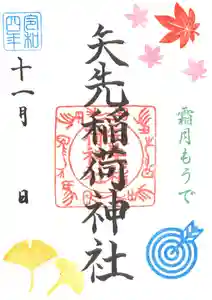 霜月もうで
矢先稲荷神社
令和四年
十一月 日